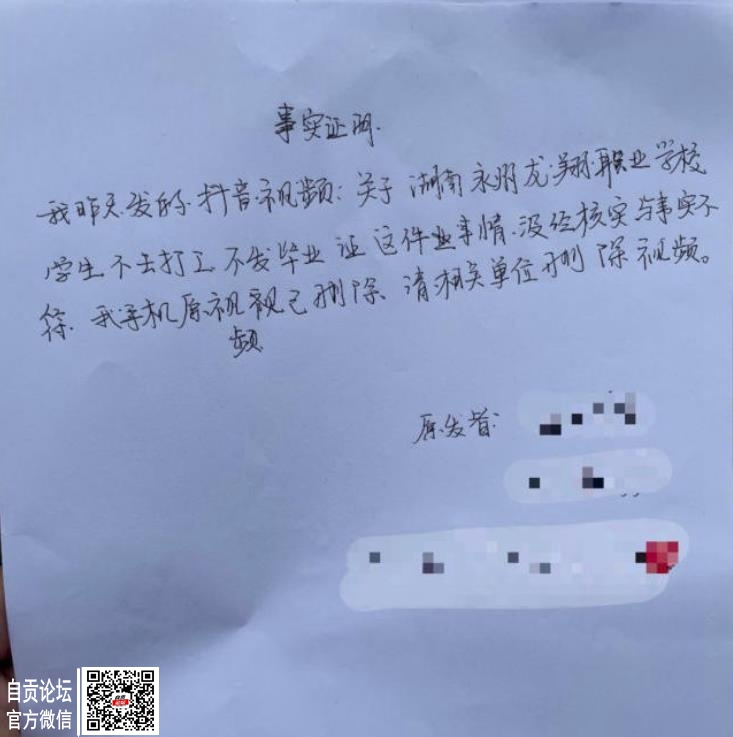 事实证明.
我昨天发的抖音视频:关于湖南永州龙翔职业学校
学生不去打工不发毕业证这件业事情.没经核实与事实不
符.我手机原视视已删除.请相关单位删除视频。
频
原发者:
自贡论坛
官方微信